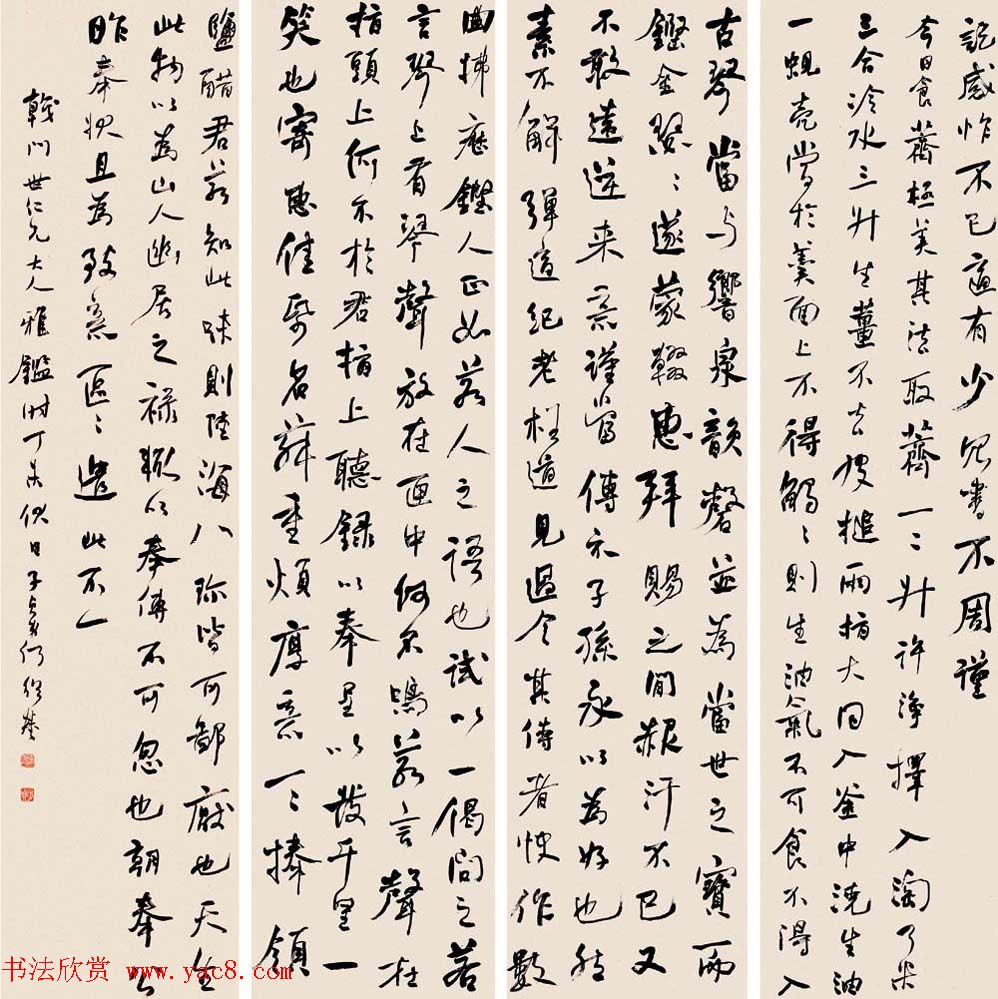 記感怍不已適有少冗書不周謹
今日食薺極美其法取薺一二升許淨擇入淘了米
三合冷水三升生薑不去皮槌兩指大同入釜中澆生油
一蜆壳當於羹面上不得觸〻則生油氣不可食不得入
古琴當与響泉韻磬並為當世之寶而
鏗金瑟〻遂蒙輟惠拜賜之間赧汗不已又
不敢遠逆来意謹當傳示子孫永以為好也然
素不解彈適紀老枉道見過令其侍者快作數
曲拂歷鏗人正如若人之語也試以一偈問之若
言琴上有琴聲放在匣中何不鳴若言聲在
指頭上何不於君指上聽録以奉呈以發千里一
笑也寄惠佳紙名荈重煩厚意一一捧領
鹽醋君若知此味則陸海八珍皆可鄙厭也天生
此物以為山人幽居之禄輒以奉傳不可忽也朝奉公
昨奉狀且為致意〻遣此不一
戟門世仁兄大人雅鑑時丁未秋日子貞何紹基
书法欣赏 www.yac8.com